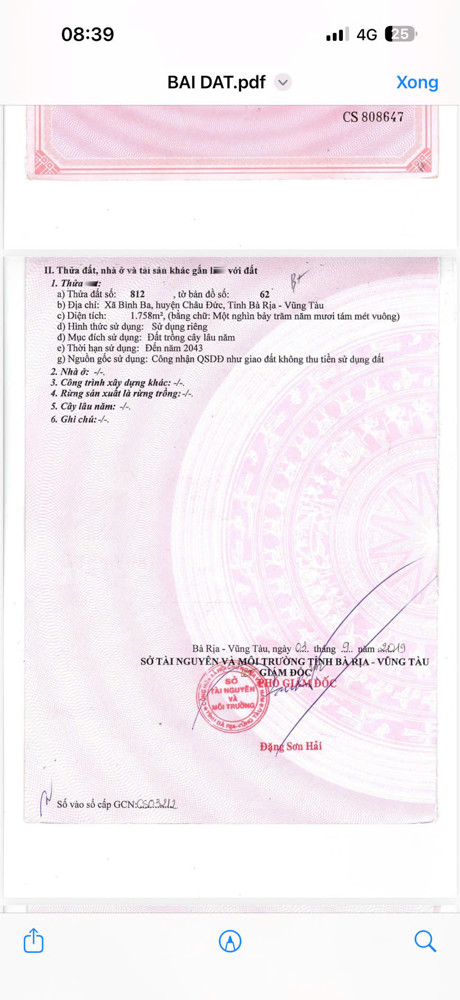 08:39
4G 25
BAI DAT.pdf
Xong
CS 808647
II. Thửa đất, nhà ở và tài sản khác gắn với đất
1. Thửa
a) Thửa đất số: 812 , tờ bản đồ số: 62
b) Địa chỉ: Xã Bình Ba, huyện Châu Đức, Tỉnh Bà Rịa - Vũng Tàu
c) Diện tích: 1.758m², (bằng chữ: Một nghìn bảy trăm năm mươi tám mét vuông)
d) Hình thức sử dụng: Sử dụng riêng
đ) Mục đích sử dụng: Đất trồng cây lâu năm
e) Thời hạn sử dụng: Đến năm 2043
g) Nguồn gốc sử dụng: Công nhận QSDĐ như giao đất không thu tiền sử dụng đất
2. Nhà ở: -/-.
3. Công trình xây dựng khác: -/-.
4. Rừng sản xuất là rừng trồng: -/-.
5. Cây lâu năm: -/-.
6. Ghi chú: -/-.
Bà Rịa - Vũng Tàu, ngày tháng 9 năm 2019
SỞ TÀI NGUYÊN VÀ MÔI TRƯỜNG TỈNH BÀ RỊA - VŨNG TÀU
GIÁM ĐỐC
PHÓ GIÁM ĐỐC
SỞ
TÀI NGUYÊN
VÀ
MÔI TRƯỜNG
Đặng Sơn Hải
Số vào sổ cấp GCN: